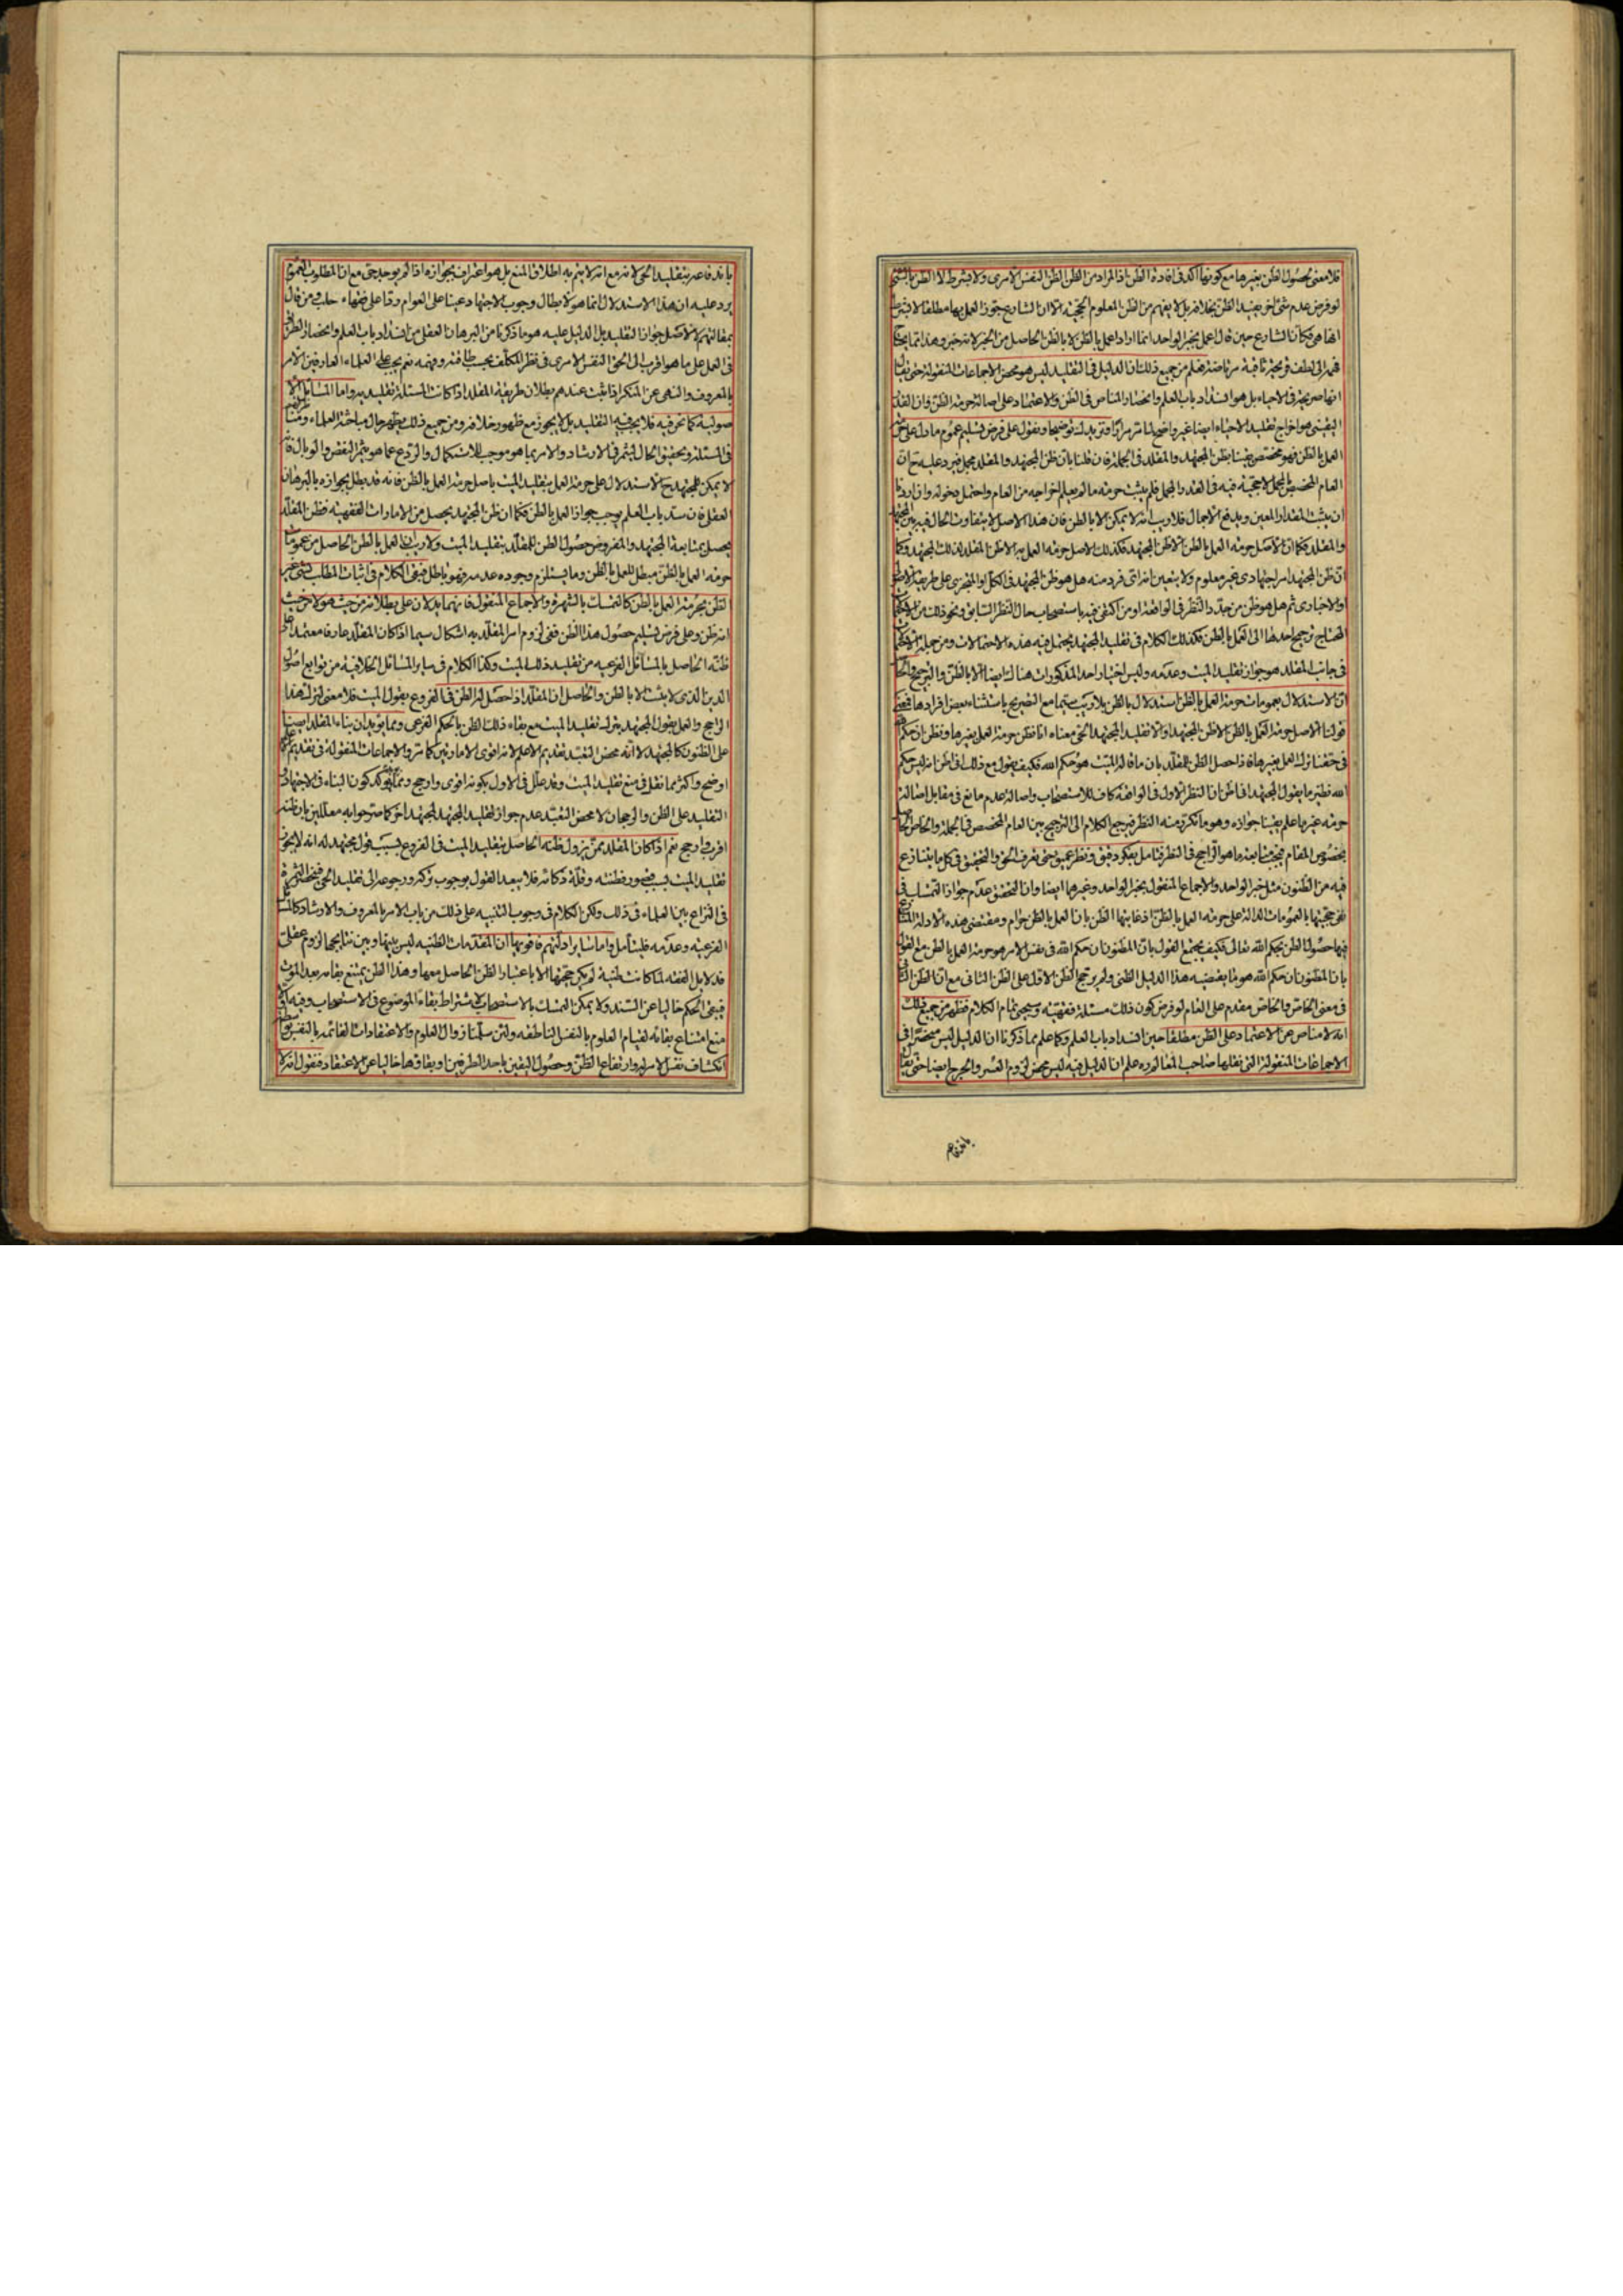 فلا معنى لحصول الظن بغيرها مع كونها آكد فى افادة الظن اذ المراد من الظن الظن النفس الامرى ولا يشترط الا الظن بالشئ
لو فرض عدم شئ آخر يفيد الظن بخلافه بل لا يفهم من الظن المعلوم الحجية الا ان الشارع جوز العمل بها مطلقا لا بشرط
انها هى فكان الشارع حين قال اعمل بخبر الواحد انما اراد اعمل بالظن لا بالظن الحاصل من الخبر لانه خبر وهذا انما يحتاج
فهمه الى لطف قريحة ثاقبة مرتاضة فعلم من جميع ذلك ان الدليل فى التقليد ليس هو محض الاجماعات المنقولة حتى يقال
انها صريحة فى الاحياء بل هو انسداد باب العلم وانحصار المناص فى الظن والاعتماد على اصالة حرمة الظن وان القدر
اليقينى هو اخراج تقليد الاحياء ايضا غير واضح لما مر مرارا ونزيد لك توضيحا ونقول على فرض تسليم عموم ما دل على حرمة
العمل بالظن فهو مختص يقينا بظن المجتهد والمقلد فى الجملة فان قلنا بان ظن المجتهد والمقلد مجمل فيرد عليه ح ان
العام المخصص بالمجمل لا حجية فيه فى القدر المجمل فلم يثبت حرمة ما لم يعلم اخراجه من العام واحتمل دخوله وان اردنا
ان يثبت المقدار المعين ويدفع الاجمال فلا ريب انه لا يمكن الا بالظن فان هذا الاصل لا يتفاوت الحال فيه بين المجتهد
والمقلد فكما ان الاصل حرمة العمل بالظن الا ظن المجتهد فكذلك الاصل حرمة العمل به الا ظن المقلد لذلك المجتهد وكما
ان ظن المجتهد امر اجتهادى غير معلوم ولا يتعين انه اى فرد منه هل هو ظن المجتهد فى الكل او المتجزى على طريقة الاصولى
او الاخبارى ثم هل هو ظن من جدد النظر فى الواقعة او من اكتفى فيه باستصحاب حال النظر السابق ونحو ذلك من الاحكام
المحتاج ترجيح احدها الى العمل بالظن فكذلك الكلام فى تقليد المجتهد يحتمل فيه هذه الاحتمالات ومن جملة الاحكام
فى جانب المقلد هو جواز تقليد الميت وعدمه وليس اختيار احد المذكورات هنالك ايضا الا بالظن والترجيح والحاصل
ان الاستدلال بعمومات حرمة العمل بالظن استدلال بالظن بلا ريب سيما مع التصريح باستثناء بعض افرادها فمعنى
قولنا الاصل حرمة العمل بالظن الا ظن المجتهد والا تقليد المجتهد الحى معناه انا نظن حرمة العمل بغيرها ونظن ان حكم الله
فى حقنا ترك العمل بغيرها فاذا حصل الظن للمقلد بان ما قاله الميت هو حكم الله فكيف يقول مع ذلك انى اظن انه ليس حكم
الله نظير ما يقول المجتهد انى اظن ان النظر الاول فى الواقعة كاف للاستصحاب واصالة عدم مانع فى مقابل اصالة
حرمة غير ما علم يقينا جوازه وهو ما تكرر منه النظر فيرجع الكلام الى الترجيح بين العام المخصص فى الجملة والخاص الحاصل
بخصوص المقام فيجب متابعة ما هو الراجح فى النظر فتامل بفكر دقيق ونظر عميق حتى تعرف الحق والتحقيق فى كل ما يتنازع
فيه من الظنون مثل خبر الواحد والاجماع المنقول بخبر الواحد وغيرهما ايضا وان التحقيق عدم جواز التمسك فى
نفى حجيتها بالعمومات الدالة على حرمة العمل بالظن اذ غايتها الظن بان العمل بالظن حرام ومقتضى هذه الادلة المتنازع
فيها حصول الظن بحكم الله تعالى فكيف يجتمع القول بان المظنون ان حكم الله فى نفس الامر هو حرمة العمل بالظن مع القول
بان المظنون ان حكم الله هو ما يقتضيه هذا الدليل الظنى ولم يرجح الظن الاول على الظن الثانى مع ان الظن الثانى
فى معنى الخاص والخاص مقدم على العام لو فرض كون ذلك مسئلة فقهية وسيجئ تمام الكلام فظهر من جميع ذلك
انه لا مناص من الاعتماد على الظن مطلقا حين انسداد باب العلم وكما علم مما ذكرنا ان الدليل ليس منحصرا فى
الاجماعات المنقولة التى نقلها صاحب المعالم ره علم ان الدليل فيه ليس محض لزوم العسر والحرج ايضا حتى يقال
بانه فاعه
بانه فاعه بتقليد الحى لانه مع انه لا يتم به اطلاق المنع بل هو اعتراف بجوازه اذا لم يوجد حى مع ان المطلوب العموم
يرد عليه ان هذا الاستدلال انما هو لابطال وجوب الاجتهاد عينا على العوام ردا على فقهاء حلب ومن قال
بمقالتهم لا لاصل جواز التقليد بل الدليل عليه هو ما ذكرنا من البرهان العقلى من انسداد باب العلم وانحصار الطريق
فى العمل على ما هو اقرب الى الحق النفس الامرى فى نظر المكلف بحسب طاقته وفهمه نعم يجب على العلماء العارفين الامر
بالمعروف والنهى عن المنكر اذا ثبت عندهم بطلان طريقة المقلد اذا كانت المسئلة تقليدية واما المسائل الا
صولية كما نحن فيه فلا يجب فيه التقليد بل لا يجوز مع ظهور خلافه ومن جميع ذلك يظهر حال مباحثة العلماء ومناقشتهم
فى المسئلة وتحقيق الحال لتثمر فى الارشاد والامر بما هو موجب للاستكمال والردع عما هو مثمر النقص والوبال فا
لا يمكن للمجتهد ح الاستدلال على حرمة العمل بتقليد الميت باصل حرمة العمل بالظن فانه قد بطل بجوازه بالبرهان
العقلى فان سد باب العلم يوجب جواز العمل بالظن فكما ان ظن المجتهد يحصل من الامارات الفقهية فظن المقلد
يحصل بمتابعة المجتهد والمفروض حصول الظن للمقلد بتقليد الميت ولا ريب ان العمل بالظن الحاصل من عمومات
حرمة العمل بالظن مبطل للعمل بالظن وما يستلزم وجوده عدمه فهو باطل فبقى الكلام فى اثبات المطلب بشئ غير
الظن بحرمة العمل بالظن كالتمسك بالشهرة والاجماع المنقول فانهما يدلان على بطلانه من حيث هو لا من حيث
انه ظن وعلى فرض تسليم حصول هذا الظن ففى لزوم امر المقلد به اشكال سيما اذا كان المقلد عارفا معتمدا على
ظنه الحاصل بالمسائل الفرعية من تقليد ذلك الميت وكذا الكلام فى سائر المسائل الخلافية من توابع اصول
الدين الذى لا يثبت الا بالظن والحاصل ان المقلد اذا حصل له الظن فى الفروع بقول الميت فلا معنى لترك هذا
الراجح والعمل بقول المجتهد بترك تقليد الميت مع بقاء ذلك الظن بالحكم الفرعى ومما يؤيد ان بناء المقلد ايضا
على الظنون كالمجتهد لا انه محض التعبد تقديم الاعلم لانه اقوى الامارتين كما مر والاجماعات المنقولة فى تقديم الاعلم
اوضح واكثر مما نقل فى منع تقليد الميت وقد علل فى الاول بكونه اقوى وارجح ومما يؤكد كون البناء فى الاجتهاد و
التقليد على الظن والرجحان لا محض التعبد عدم جواز تقليد المجتهد لمجتهد آخر كما صرحوا به معللين بان ظنه
اقرب وارجح نعم اذا كان المقلد ممن يزول ظنه الحاصل بتقليد الميت فى الفروع بسبب قول مجتهد له انه لا يجوز
تقليد الميت بسبب قصور فطنته وقلة ذكائه فلا يبعد القول بوجوب تركه ورجوعه الى تقليد الحى فينحصر الثمرة
فى النزاع بين العلماء فى ذلك ولكن الكلام فى وجوب التنبيه على ذلك من باب الامر بالمعروف والارشاد كالمسائل
الفرعية وعدمه فليتأمل واما سائر ادلتهم فاقويها ان المقدمات الظنية ليس بينها وبين نتايجها لزوم عقلى
فدلايل الفقه لما كانت ظنية لم يكن حجيتها الا باعتبار الظن الحاصل معها وهذا الظن يمتنع بقاؤه بعد الموت
فبقى الحكم خاليا عن السند ولا يمكن التمسك بالاستصحاب لاشتراط بقاء الموضوع فى الاستصحاب وفيه اولا
منع امتناع بقائه لقيام العلوم بالنفس الناطقة ولئن سلمنا زوال العلوم والاعتقادات القائمة بالنفس بواسطة
انكشاف نفس الامر له وارتفاع الظن وحصول اليقين باحد الطرفين او بقاؤها خاليا عن الاعتقاد فنقول انه لا